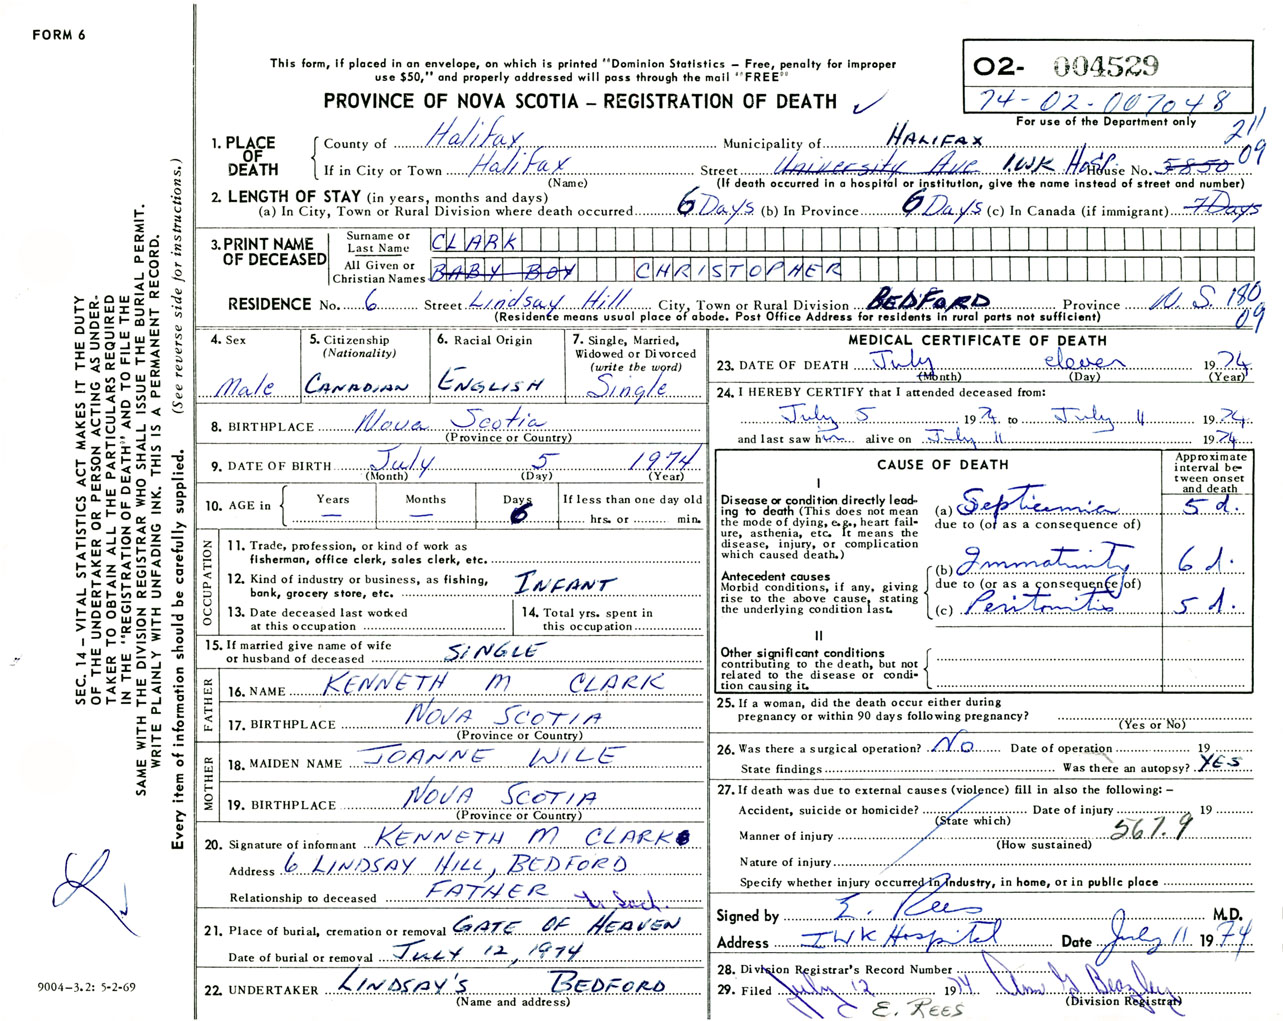 FORM 6
This form, if placed in an envelope, on which is printed "Dominion Statistics – Free, penalty for improper
use $50," and properly addressed will pass through the mail "FREE"
PROVINCE OF NOVA SCOTIA – REGISTRATION OF DEATH ✓
O2- 004529
74-02-007048
For use of the Department only
211
09
1. PLACE OF DEATH
County of Halifax Municipality of HALIFAX
If in City or Town Halifax Street University Ave I.W.K Hosp. House No. 5850
(Name) (If death occurred in a hospital or institution, give the name instead of street and number)
2. LENGTH OF STAY (in years, months and days)
(a) In City, Town or Rural Division where death occurred 6 Days (b) In Province 6 Days (c) In Canada (if immigrant) 7 Days
3. PRINT NAME OF DECEASED
Surname or Last Name CLARK
All Given or Christian Names BABY BOY CHRISTOPHER
RESIDENCE No. 6 Street Lindsay Hill City, Town or Rural Division BEDFORD Province N.S. 180
09
(Residence means usual place of abode. Post Office Address for residents in rural parts not sufficient)
4. Sex Male
5. Citizenship (Nationality) CANADIAN
6. Racial Origin ENGLISH
7. Single, Married, Widowed or Divorced (write the word) Single
8. BIRTHPLACE Nova Scotia
(Province or Country)
9. DATE OF BIRTH July 5 1974
(Month) (Day) (Year)
10. AGE in Years — Months — Days 6 If less than one day old hrs. or min.
OCCUPATION
11. Trade, profession, or kind of work as
fisherman, office clerk, sales clerk, etc.
12. Kind of industry or business, as fishing,
bank, grocery store, etc. INFANT
13. Date deceased last worked
at this occupation
14. Total yrs. spent in
this occupation
15. If married give name of wife
or husband of deceased SINGLE
FATHER
16. NAME KENNETH M CLARK
17. BIRTHPLACE NOVA SCOTIA
(Province or Country)
MOTHER
18. MAIDEN NAME JOANNE WILE
19. BIRTHPLACE NOVA SCOTIA
(Province or Country)
20. Signature of informant KENNETH M CLARK
Address 6 LINDSAY HILL, BEDFORD
Relationship to deceased FATHER
21. Place of burial, cremation or removal GATE OF HEAVEN
Date of burial or removal JULY 12, 1974
22. UNDERTAKER LINDSAY'S BEDFORD
(Name and address)
MEDICAL CERTIFICATE OF DEATH
23. DATE OF DEATH July eleven 1974
(Month) (Day) (Year)
24. I HEREBY CERTIFY that I attended deceased from:
July 5 1974 to July 11 1974
and last saw him alive on July 11 1974
CAUSE OF DEATH
Approximate interval between onset and death
I
Disease or condition directly leading to death (This does not
mean the mode of dying, e.g., heart failure, asthenia, etc. It means the
disease, injury, or complication
which caused death.)
(a) Septicemia 5 d.
due to (or as a consequence of)
Antecedent causes
Morbid conditions, if any, giving
rise to the above cause, stating
the underlying condition last.
(b) Immaturity 6 d.
due to (or as a consequence of)
(c) Peritonitis 5 d.
II
Other significant conditions
contributing to the death, but not
related to the disease or condition causing it.
25. If a woman, did the death occur either during
pregnancy or within 90 days following pregnancy?
(Yes or No)
26. Was there a surgical operation? No Date of operation 19
State findings Was there an autopsy? YES
27. If death was due to external causes (violence) fill in also the following: –
Accident, suicide or homicide? Date of injury 19
(State which)
Manner of injury 567.9
(How sustained)
Nature of injury
Specify whether injury occurred in industry, in home, or in public place
Signed by E. Rees M.D.
Address IWK Hospital Date July 11 1974
28. Division Registrar's Record Number
29. Filed July 12 1974 Ann G Beazley
(Division Registrar)
E. REES
SEC. 14 – VITAL STATISTICS ACT MAKES IT THE DUTY
OF THE UNDERTAKER OR PERSON ACTING AS UNDER-
TAKER TO OBTAIN ALL THE PARTICULARS REQUIRED
IN THE "REGISTRATION OF DEATH" AND TO FILE THE
SAME WITH THE DIVISION REGISTRAR WHO SHALL ISSUE THE BURIAL PERMIT.
WRITE PLAINLY WITH UNFADING INK. THIS IS A PERMANENT RECORD.
Every item of information should be carefully supplied. (See reverse side for instructions.)
9004-3.2: 5-2-69